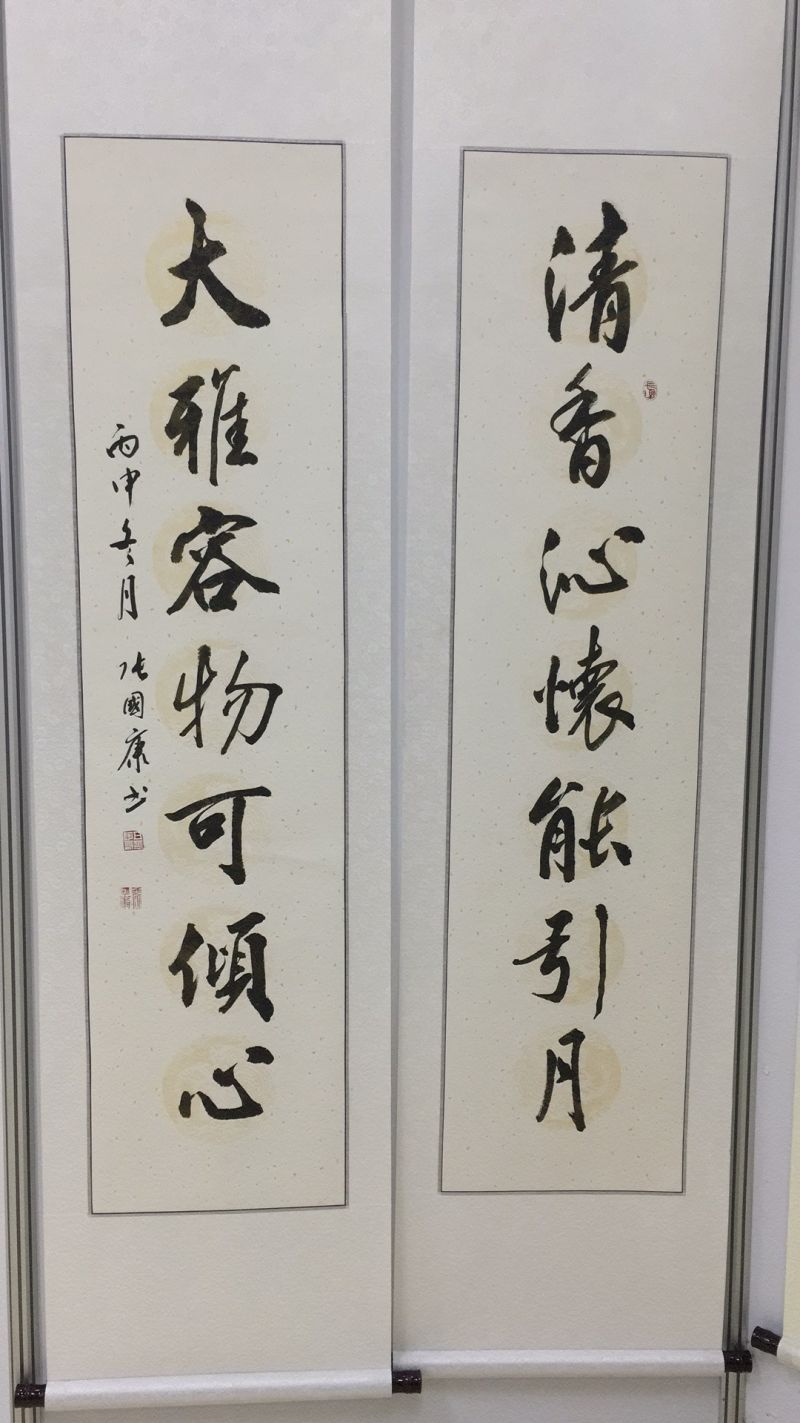 清香沁懷能引月
大雅容物可傾心
丙申冬月 張國康书